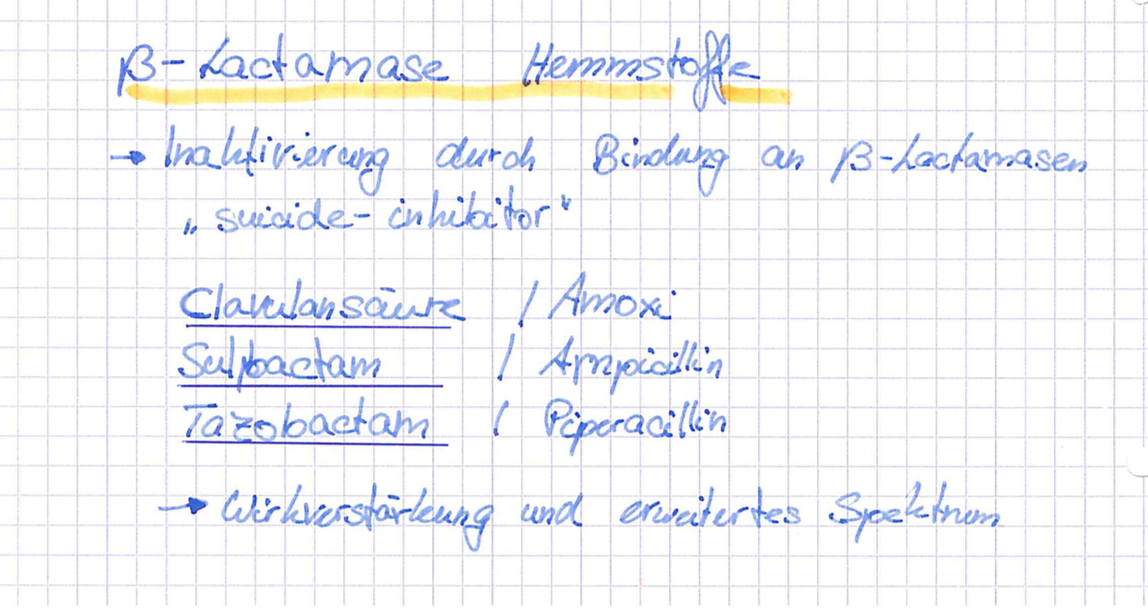 β-Lactamase Hemmstoffe
→ Inaktivierung durch Bindung an β-Lactamasen
„suicide-inhibitor"
Clavulansäure / Amoxi
Sulbactam / Ampicillin
Tazobactam / Piperacillin
→ Wirkverstärkung und erweitertes Spektrum